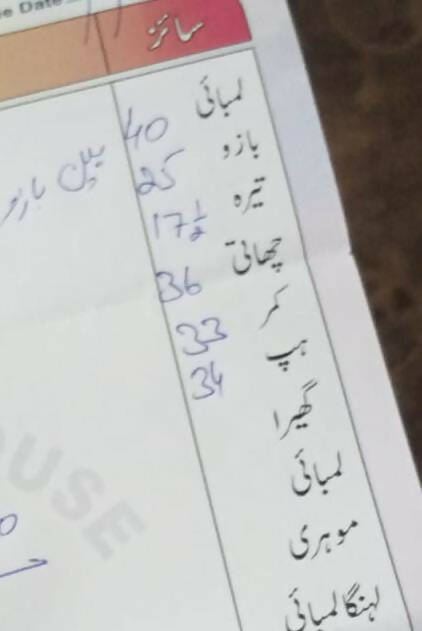 e Date
سائز
لمبائی 40
بازو 25 بیل بازو
تیرہ 17 1/2
چھاتی 36
کمر 33
ہپ 34
گھیرا
لمبائی
موہری
لہنگا لمبائی
OUSE